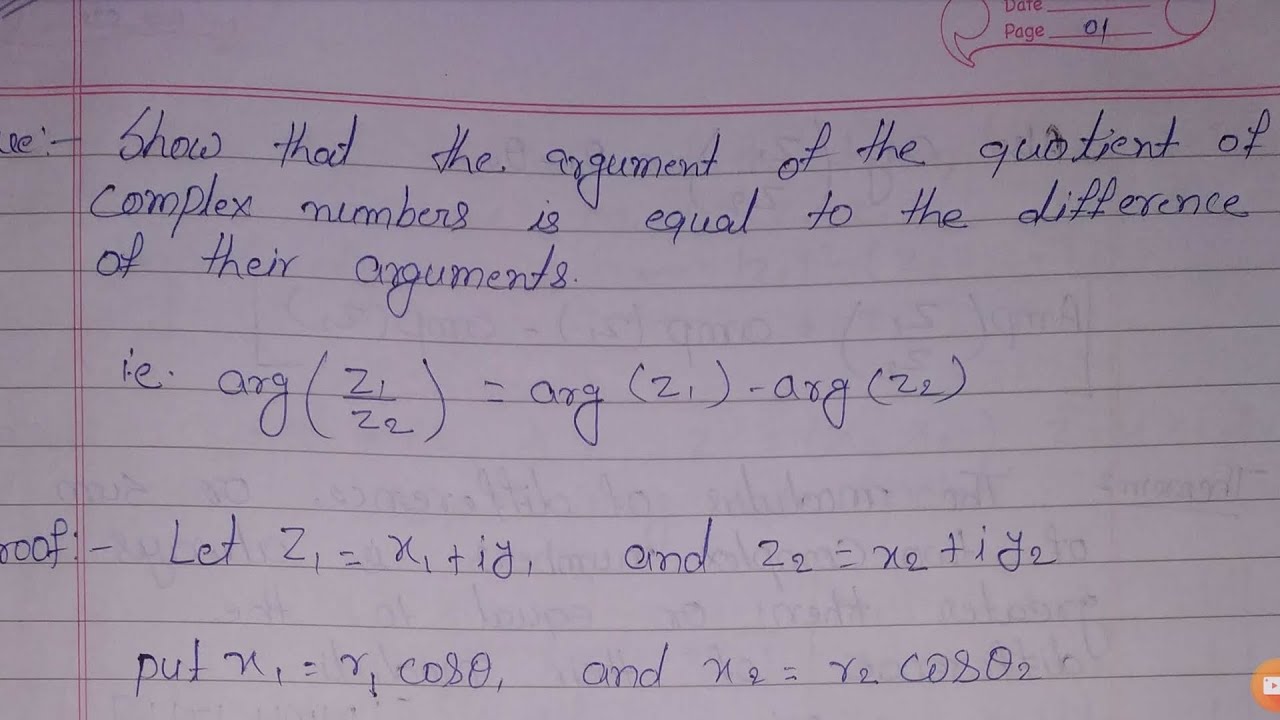 Date
Page 01
Show that the argument of the quotient of
complex numbers is equal to the difference
of their arguments.
i.e. arg(Z₁/Z₂) = arg (Z₁) - arg (Z₂)
roof:- Let Z₁ = x₁ + iy₁ and Z₂ = x₂ + iy₂
put x₁ = r₁ cosθ₁ and x₂ = r₂ cosθ₂